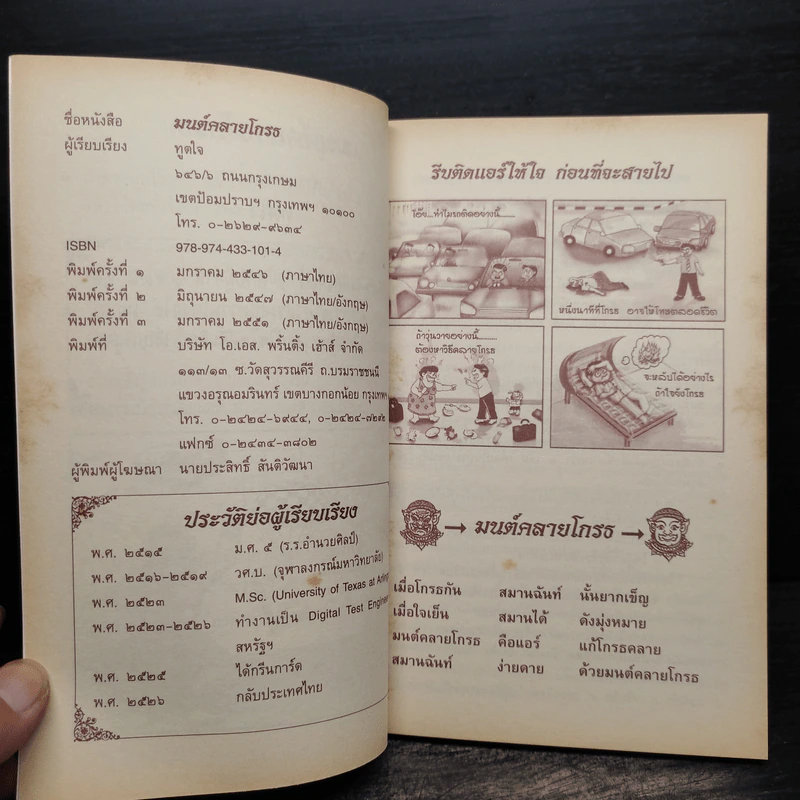 ชื่อหนังสือ มนต์คลายโกรธ
ผู้เรียบเรียง ทูตใจ
๖๔๖/๖ ถนนกรุงเกษม
เขตป้อมปราบฯ กรุงเทพฯ ๑๐๑๐๐
โทร. ๐-๒๖๒๙-๙๖๓๔
ISBN 978-974-433-101-4
พิมพ์ครั้งที่ ๑ มกราคม ๒๕๔๖ (ภาษาไทย)
พิมพ์ครั้งที่ ๒ มิถุนายน ๒๕๔๗ (ภาษาไทย/อังกฤษ)
พิมพ์ครั้งที่ ๓ มกราคม ๒๕๕๑ (ภาษาไทย/อังกฤษ)
พิมพ์ที่ บริษัท โอ.เอส. พริ้นติ้ง เฮ้าส์ จำกัด
๑๑๓/๑๓ ซ.วัดสุวรรณคีรี ถ.บรมราชชนนี
แขวงอรุณอมรินทร์ เขตบางกอกน้อย กรุงเทพฯ
โทร. ๐-๒๔๒๔-๖๙๔๔, ๐-๒๔๒๔-๗๒๙๒
แฟกซ์ ๐-๒๔๓๔-๓๘๐๒
ผู้พิมพ์ผู้โฆษณา นายประสิทธิ์ สันติวัฒนา
ประวัติย่อผู้เรียบเรียง
พ.ศ. ๒๕๑๕ ม.ศ. ๕ (ร.ร.อำนวยศิลป์)
พ.ศ. ๒๕๑๖-๒๕๑๙ วศ.บ. (จุฬาลงกรณ์มหาวิทยาลัย)
พ.ศ. ๒๕๒๓ M.Sc. (University of Texas at
พ.ศ. ๒๕๒๓-๒๕๒๖ ทำงานเป็น Digital Test
สหรัฐฯ
พ.ศ. ๒๕๒๕ ได้กรีนการ์ด
พ.ศ. ๒๕๒๖ กลับประเทศไทย
รีบติดแอร์ให้ใจ ก่อนที่จะสายไป
โอ๊ย...ทำไมรถติดอย่างนี้......
หนึ่งนาทีที่โกรธ อาจให้โทษตลอดชีวิต
ถ้าวุ่นวายอย่างนี้......
ต้องหาวิธีคลายโกรธ
จะหลับได้อย่างไร
ถ้าใจยังโกรธ
→ มนต์คลายโกรธ →
เมื่อโกรธกัน สมานฉันท์ นั้นยากเข็ญ
เมื่อใจเย็น สมานได้ ดังมุ่งหมาย
มนต์คลายโกรธ คือแอร์ แก้โกรธคลาย
สมานฉันท์ ง่ายดาย ด้วยมนต์คลายโกรธ